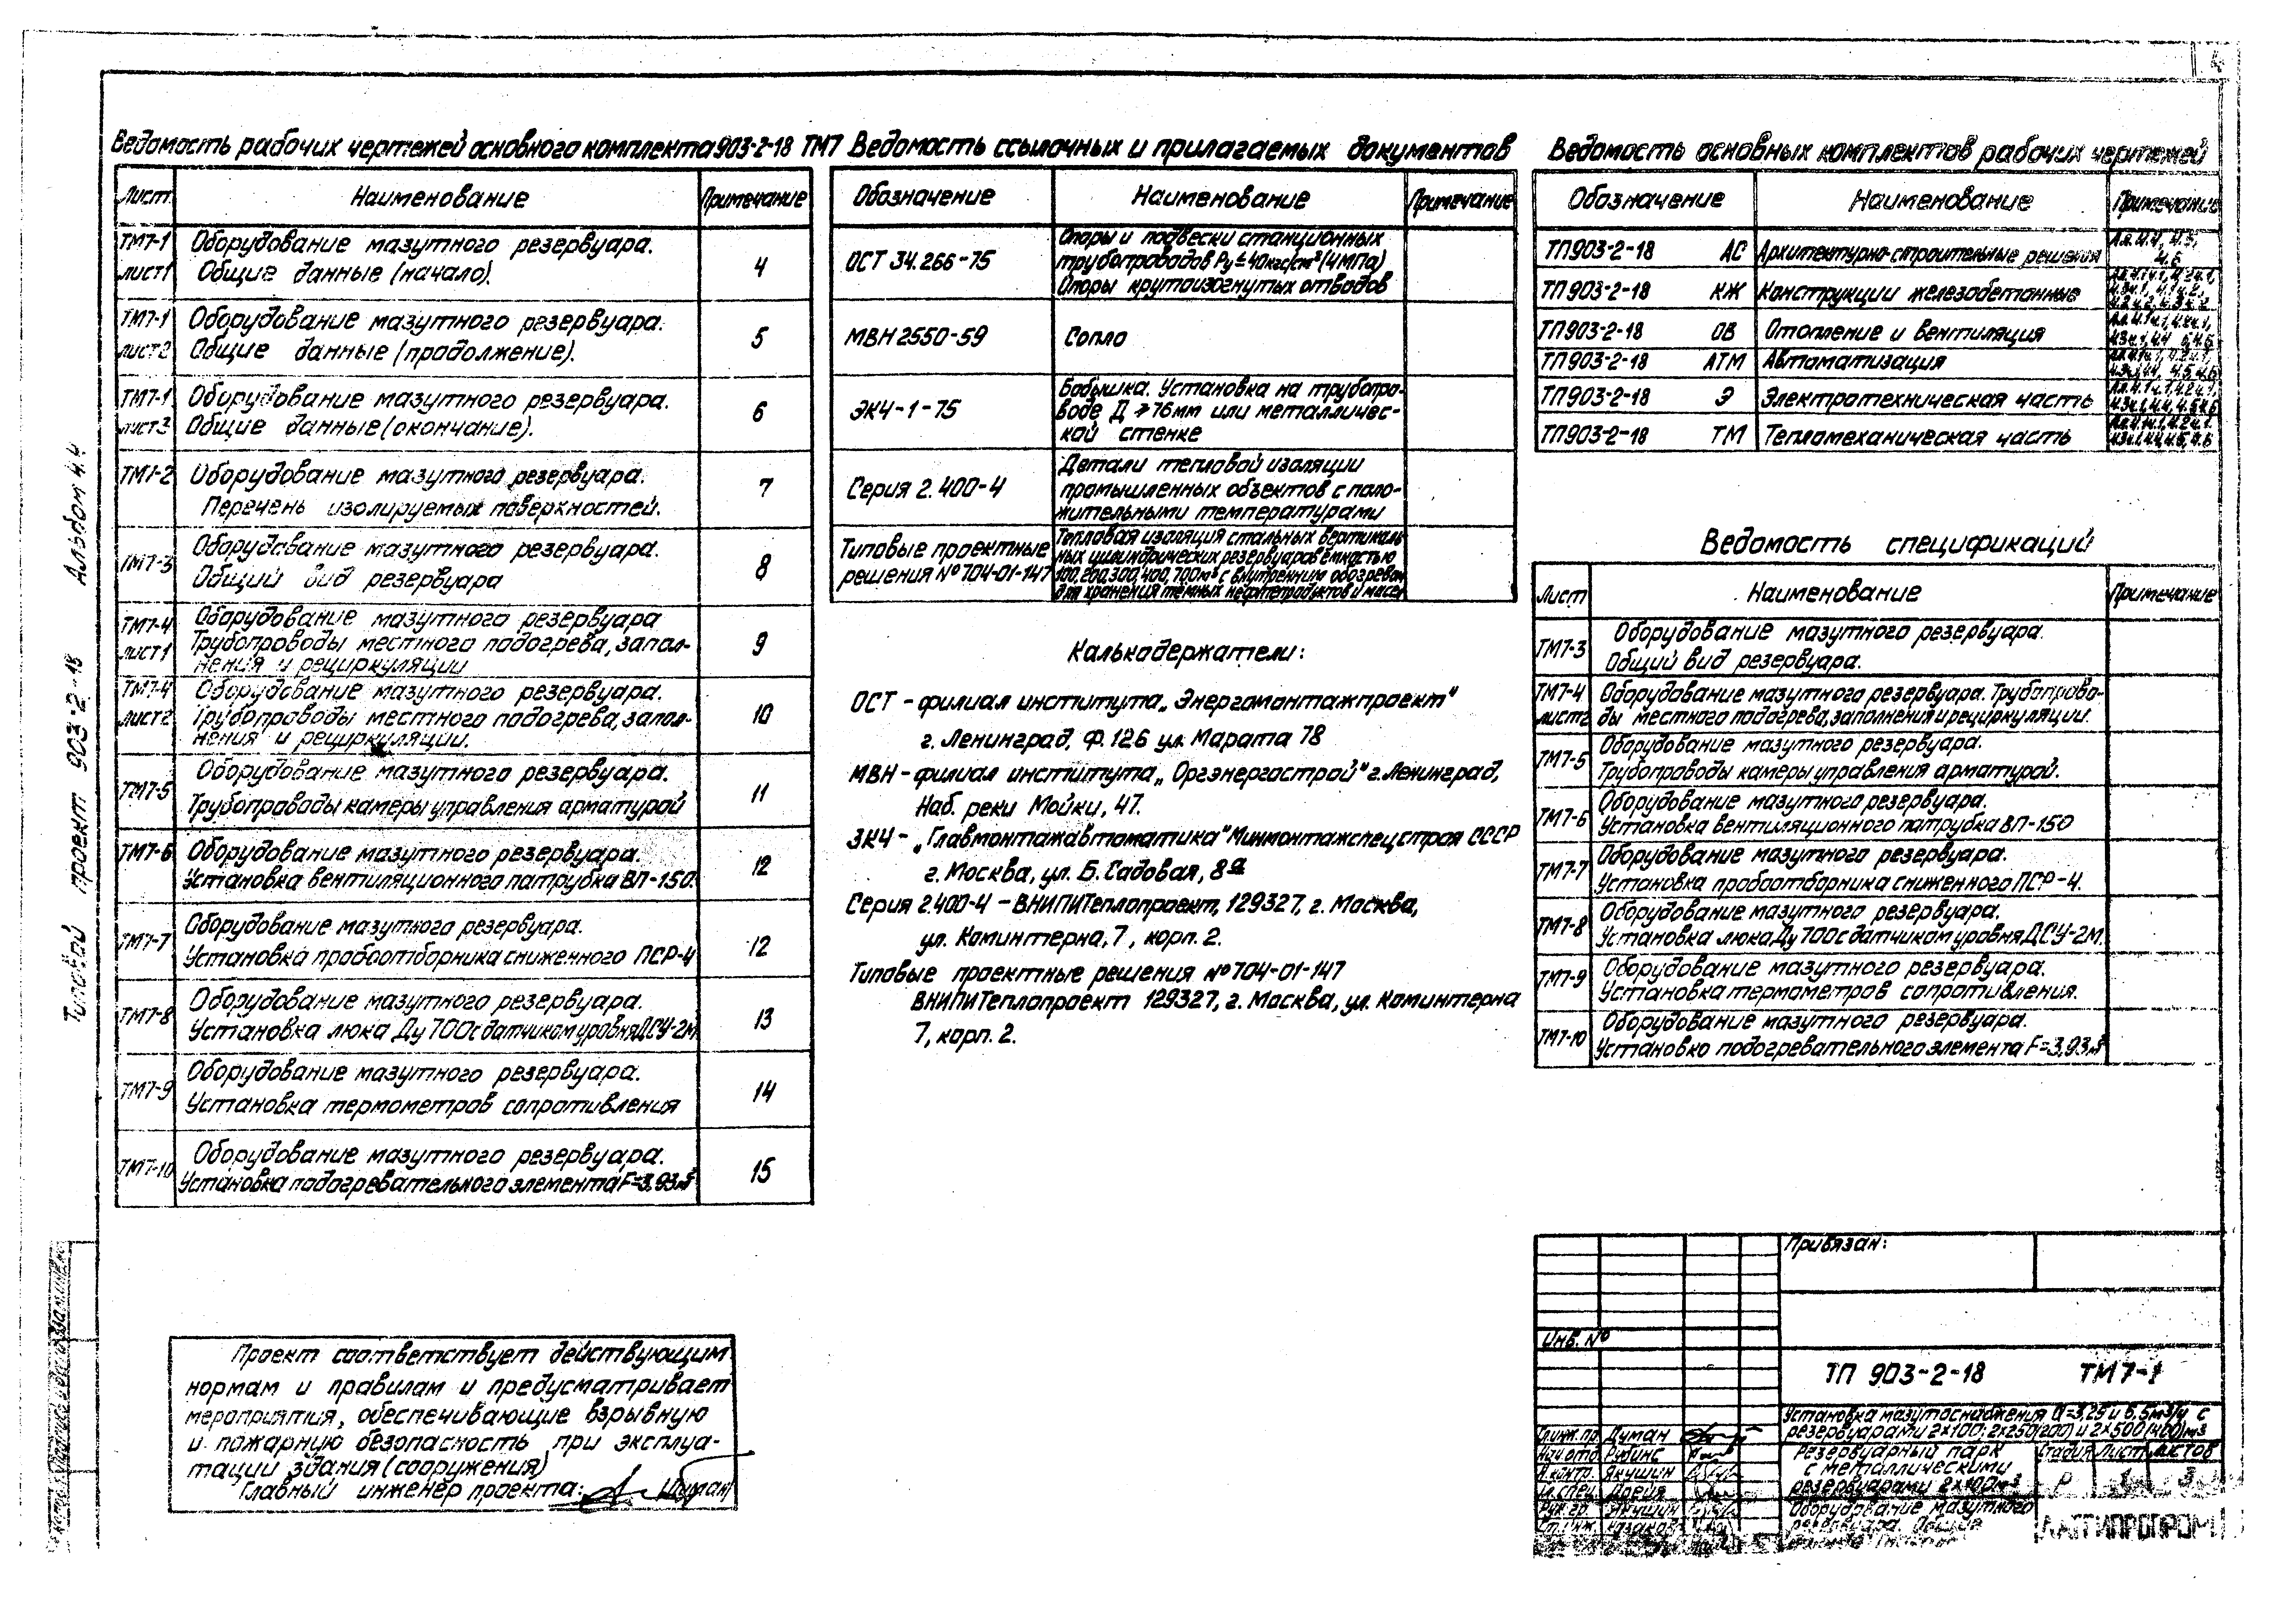 4
Типовой проект 903-2-18 Альбом 4.4
Ведомость рабочих чертежей основного комплекта 903-2-18 ТМ7
Лист Наименование Примечание
ТМ7-1 Оборудование мазутного резервуара.
лист1 Общие данные (начало). 4
ТМ7-1 Оборудование мазутного резервуара.
лист2 Общие данные (продолжение). 5
ТМ7-1 Оборудование мазутного резервуара.
лист3 Общие данные (окончание). 6
ТМ7-2 Оборудование мазутного резервуара.
Перечень изолируемых поверхностей. 7
ТМ7-3 Оборудование мазутного резервуара.
Общий вид резервуара 8
ТМ7-4 Оборудование мазутного резервуара
лист1 Трубопроводы местного подогрева, запол-
нения и рециркуляции 9
ТМ7-4 Оборудование мазутного резервуара.
лист2 Трубопроводы местного подогрева, запол-
нения и рециркуляции. 10
ТМ7-5 Оборудование мазутного резервуара.
Трубопроводы камеры управления арматурой 11
ТМ7-6 Оборудование мазутного резервуара.
Установка вентиляционного патрубка ВП-150. 12
ТМ7-7 Оборудование мазутного резервуара.
Установка пробоотборника сниженного ПСР-4 12
ТМ7-8 Оборудование мазутного резервуара.
Установка люка Ду 700 с датчиком уровня ДСУ-2М. 13
ТМ7-9 Оборудование мазутного резервуара.
Установка термометров сопротивления 14
ТМ7-10 Оборудование мазутного резервуара.
Установка подогревательного элемента F=3,93м² 15
Проект соответствует действующим
нормам и правилам и предусматривает
мероприятия, обеспечивающие взрывную
и пожарную безопасность при эксплуа-
тации здания (сооружения)
Главный инженер проекта: Думан
Ведомость ссылочных и прилагаемых документов
Обозначение Наименование Примечание
ОСТ 34.266-75 Опоры и подвески станционных
трубопроводов Ру≤40кгс/см² (4МПа)
Опоры крутоизогнутых отводов
МВН 2550-59 Сопло
ЗК4-1-75 Бобышка. Установка на трубопро-
воде Д ≥76мм или металличес-
кой стенке
Серия 2.400-4 Детали тепловой изоляции
промышленных объектов с поло-
жительными температурами
Типовые проектные решения №704-01-147 Тепловая изоляция стальных вертикаль-
ных цилиндрических резервуаров емкостью
100,200,300,400,700м³ с внутренним обогревом
для хранения темных нефтепродуктов и масел
Калькодержатели:
ОСТ - филиал института „Энергомонтажпроект"
г. Ленинград, Ф.126 ул. Марата 78
МВН - филиал института „Оргэнергострой" г. Ленинград,
Наб. реки Мойки, 47.
ЗК4 - „Главмонтажавтоматика" Минмонтажспецстроя СССР
г. Москва, ул. Б. Садовая, 8а
Серия 2.400-4 - ВНИПИТеплопроект, 129327, г. Москва,
ул. Коминтерна, 7, корп. 2.
Типовые проектные решения №704-01-147
ВНИПИТеплопроект 129327, г. Москва, ул. Коминтерна
7, корп. 2.
Ведомость основных комплектов рабочих чертежей
Обозначение Наименование Примечание
ТП903-2-18 АС Архитектурно-строительные решения
ТП903-2-18 КЖ Конструкции железобетонные
ТП903-2-18 ОВ Отопление и вентиляция
ТП903-2-18 АТМ Автоматизация
ТП903-2-18 Э Электротехническая часть
ТП903-2-18 ТМ Тепломеханическая часть
Ведомость спецификаций
Лист Наименование Примечание
ТМ7-3 Оборудование мазутного резервуара.
Общий вид резервуара.
ТМ7-4 Оборудование мазутного резервуара. Трубопрово-
лист2 ды местного подогрева, заполнения и рециркуляции.
ТМ7-5 Оборудование мазутного резервуара.
Трубопроводы камеры управления арматурой.
ТМ7-6 Оборудование мазутного резервуара.
Установка вентиляционного патрубка ВП-150
ТМ7-7 Оборудование мазутного резервуара.
Установка пробоотборника сниженного ПСР-4.
ТМ7-8 Оборудование мазутного резервуара.
Установка люка Ду 700 с датчиком уровня ДСУ-2М.
ТМ7-9 Оборудование мазутного резервуара.
Установка термометров сопротивления.
ТМ7-10 Оборудование мазутного резервуара.
Установка подогревательного элемента F=3,93м²
Привязан:
Инв. №
ТП 903-2-18 ТМ7-1
Установка мазутоснабжения Q=3,25 и 6,5м3/ч с
резервуарами 2х100; 2х250(200) и 2х500(400)м3
Гл.инж.пр. Думан
Нач.отд. Рубинс
Н.контр. Якушин
Гл.спец.
Рук.гр. Якушин
Ст.инж.
Резервуарный парк
с металлическими
резервуарами 2х100м3
Стадия Лист Листов
Р 1 3
Оборудование мазутного
резервуара. Общие
ЛАТГИПРОПРОМ